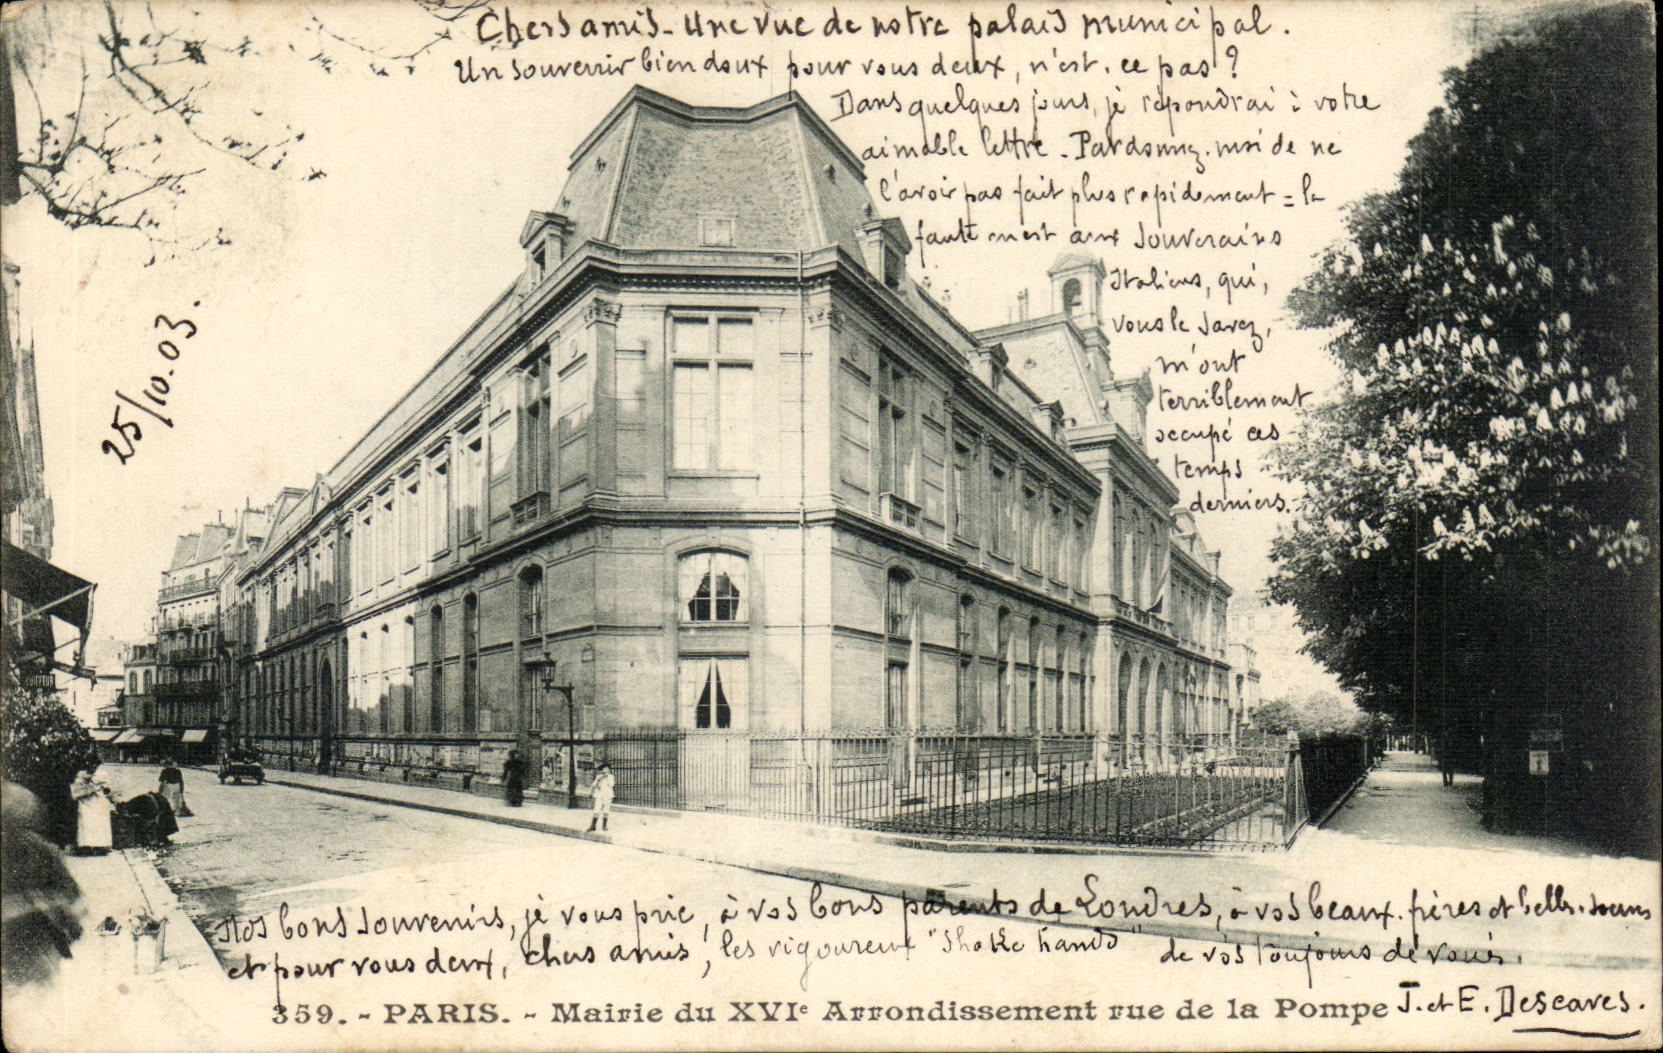 Chers amis - Une vue de notre palais municipal.
Un souvenir bien doux pour vous deux, n'est-ce pas ?
Dans quelques jours, je répondrai à votre
aimable lettre - Pardonnez-moi de ne
l'avoir pas fait plus rapidement = la
faute en est aux Souverains
Italiens, qui,
vous le savez,
m'ont
terriblement
occupé ces
temps
derniers.
25/10.03.
COIFFEUR
Nos bons souvenirs, je vous prie, à vos bons parents de Londres, à vos beaux-frères et belles-sœurs
et pour vous deux, chers amis, les vigoureux "Shake hands" de vos toujours dévoués.
359. - PARIS. - Mairie du XVIe Arrondissement rue de la Pompe
J. et E. Descaves.